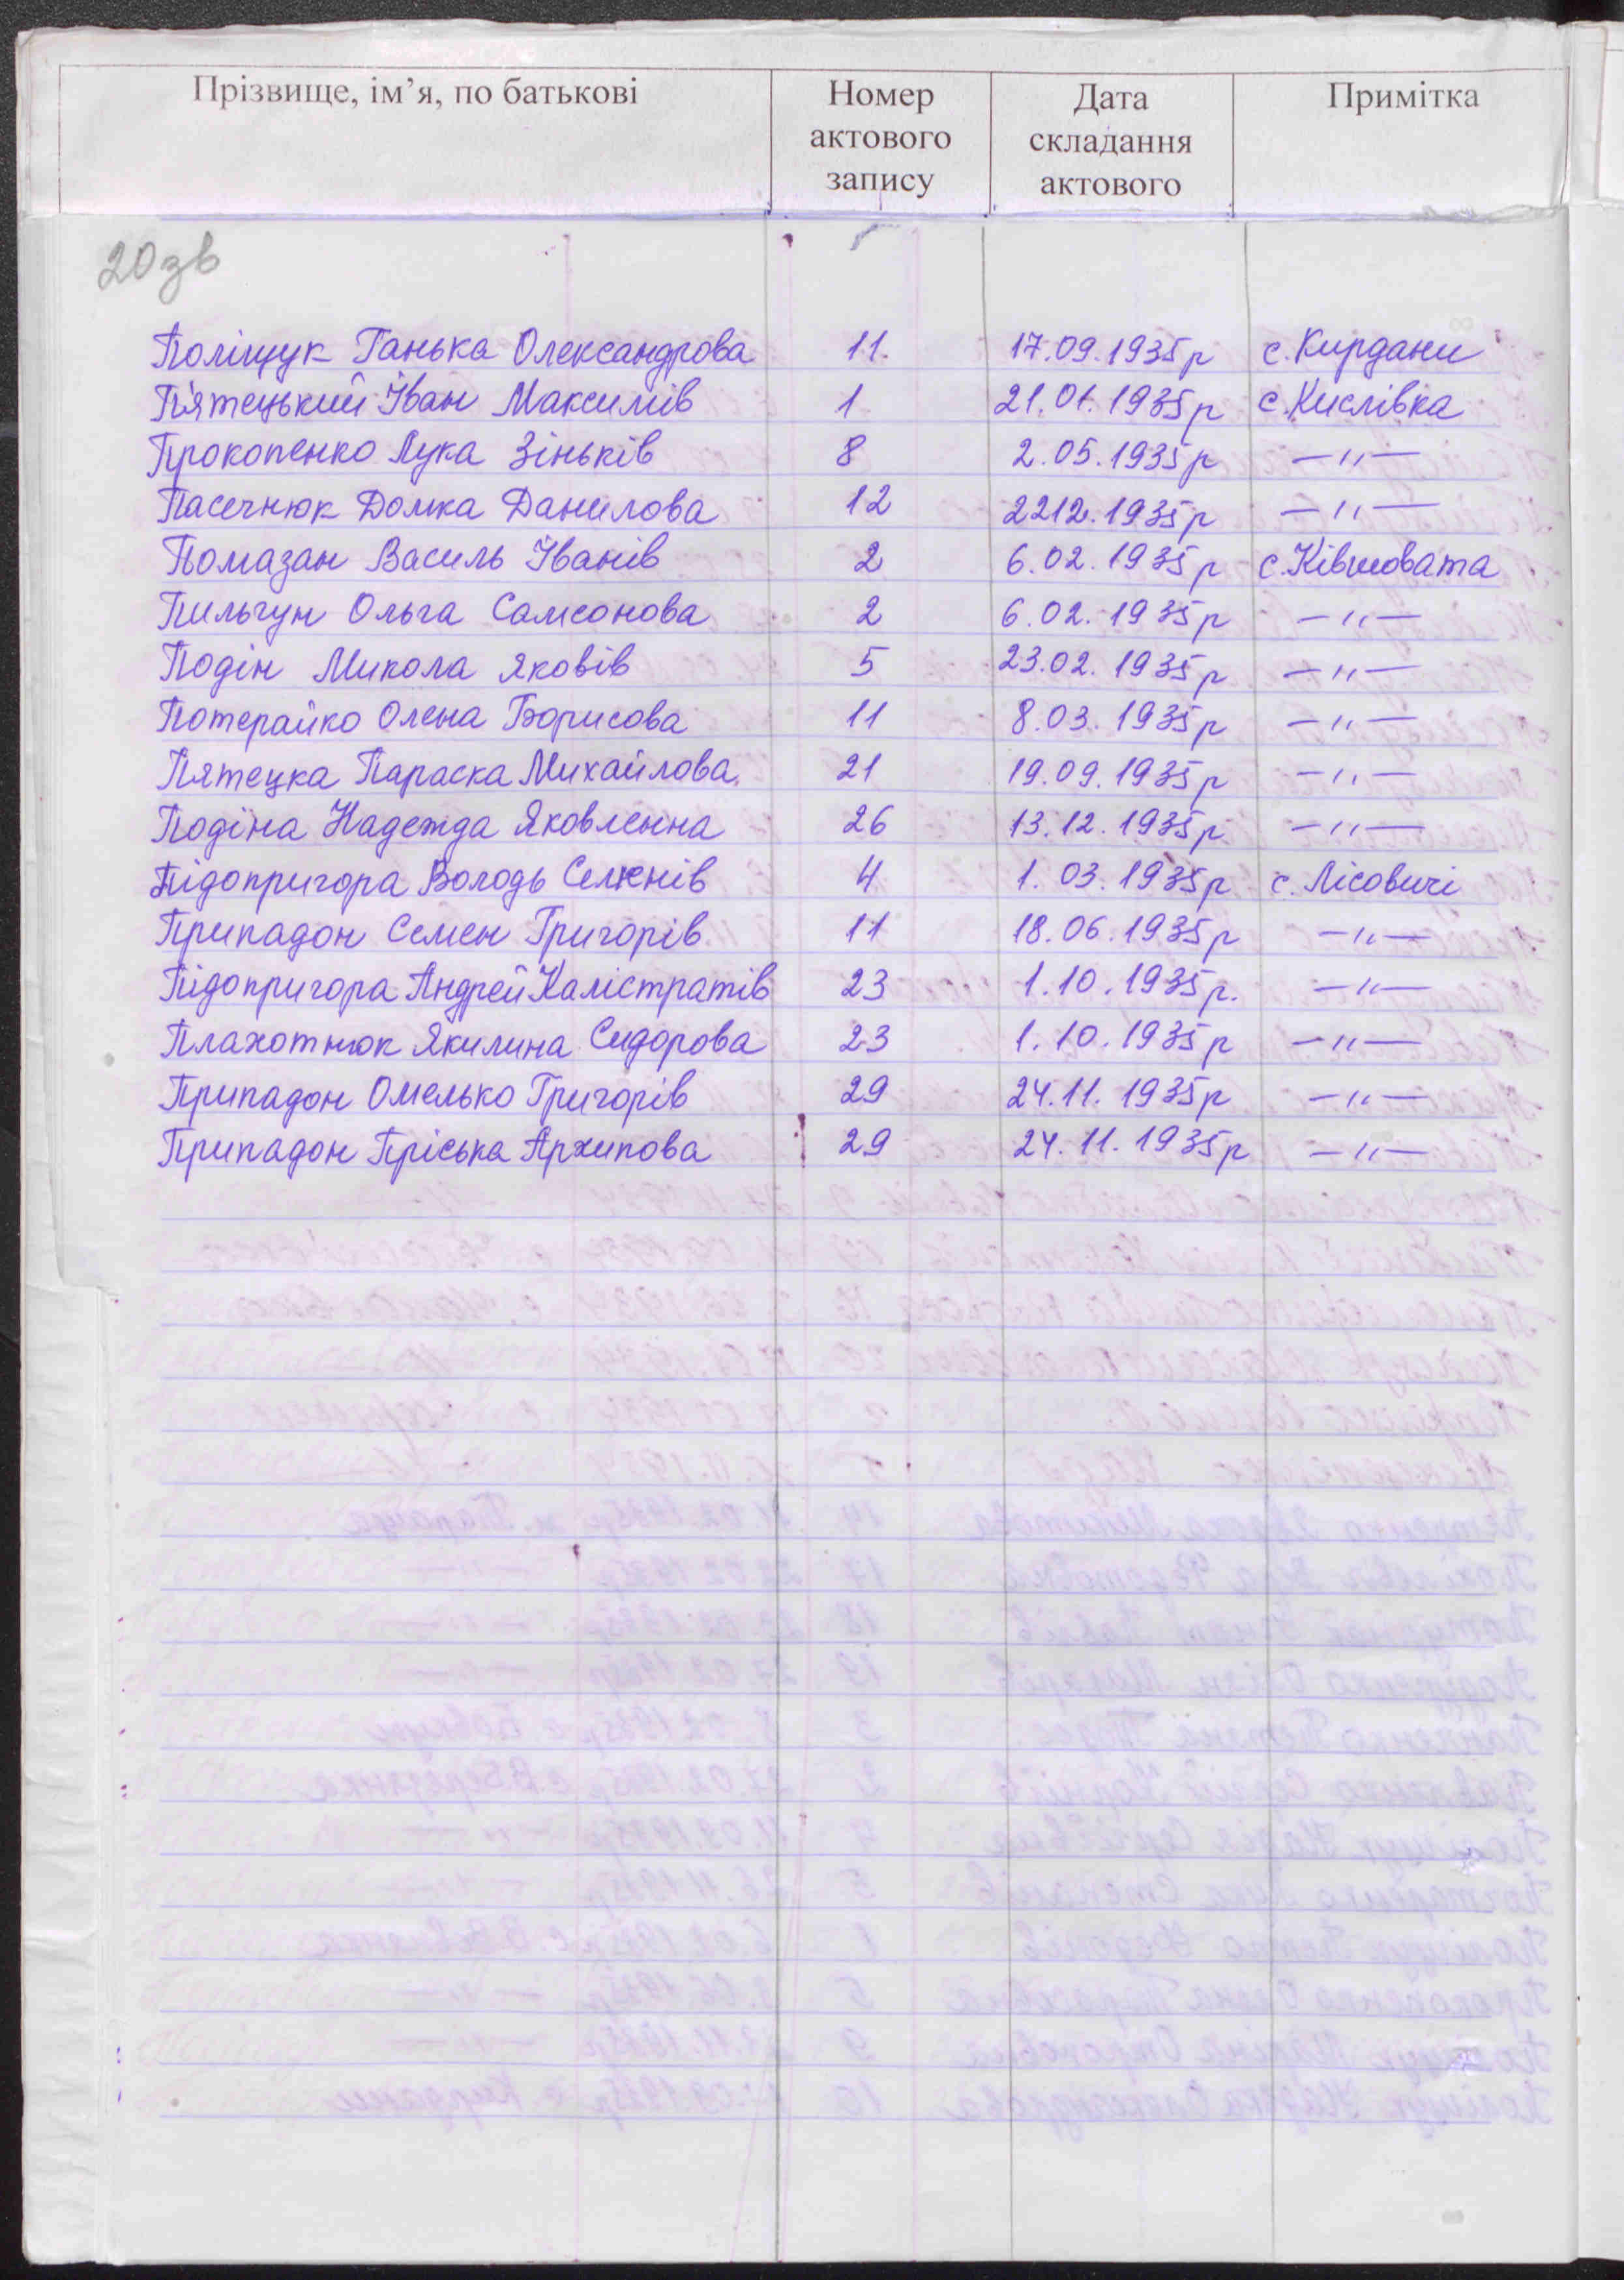 Прізвище, ім’я, по батькові Номер актового запису Дата складання актового Примітка
20зв
Поліщук Ганька Олександрова 11. 17.09.1935р с. Кирдани
П'ятецький Іван Максимів 1 21.01.1935р с. Кислівка
Прокопенко Лука Зіньків 8 2.05.1935р —〃—
Пасечнюк Домка Данилова 12 2212.1935р —〃—
Помазан Василь Іванів 2 6.02.1935р с. Ківшовата
Пильгун Ольга Самсонова 2 6.02.1935р —〃—
Подін Микола Яковів 5 23.02.1935р —〃—
Потерайко Олена Борисова 11 8.03.1935р —〃—
Пятецка Параска Михайлова 21 19.09.1935р —〃—
Подіна Надежда Яковленна 26 13.12.1935р —〃—
Підопригора Володь Семенів 4 1.03.1935р с. Лісовичі
Припадон Семен Григорів 11 18.06.1935р —〃—
Підопригора Андрей Калістратів 23 1.10.1935р. —〃—
Плахотнюк Якилина Сидорова 23 1.10.1935р —〃—
Припадон Омелько Григорів 29 24.11.1935р —〃—
Припадон Пріська Архипова 29 24.11.1935р —〃—